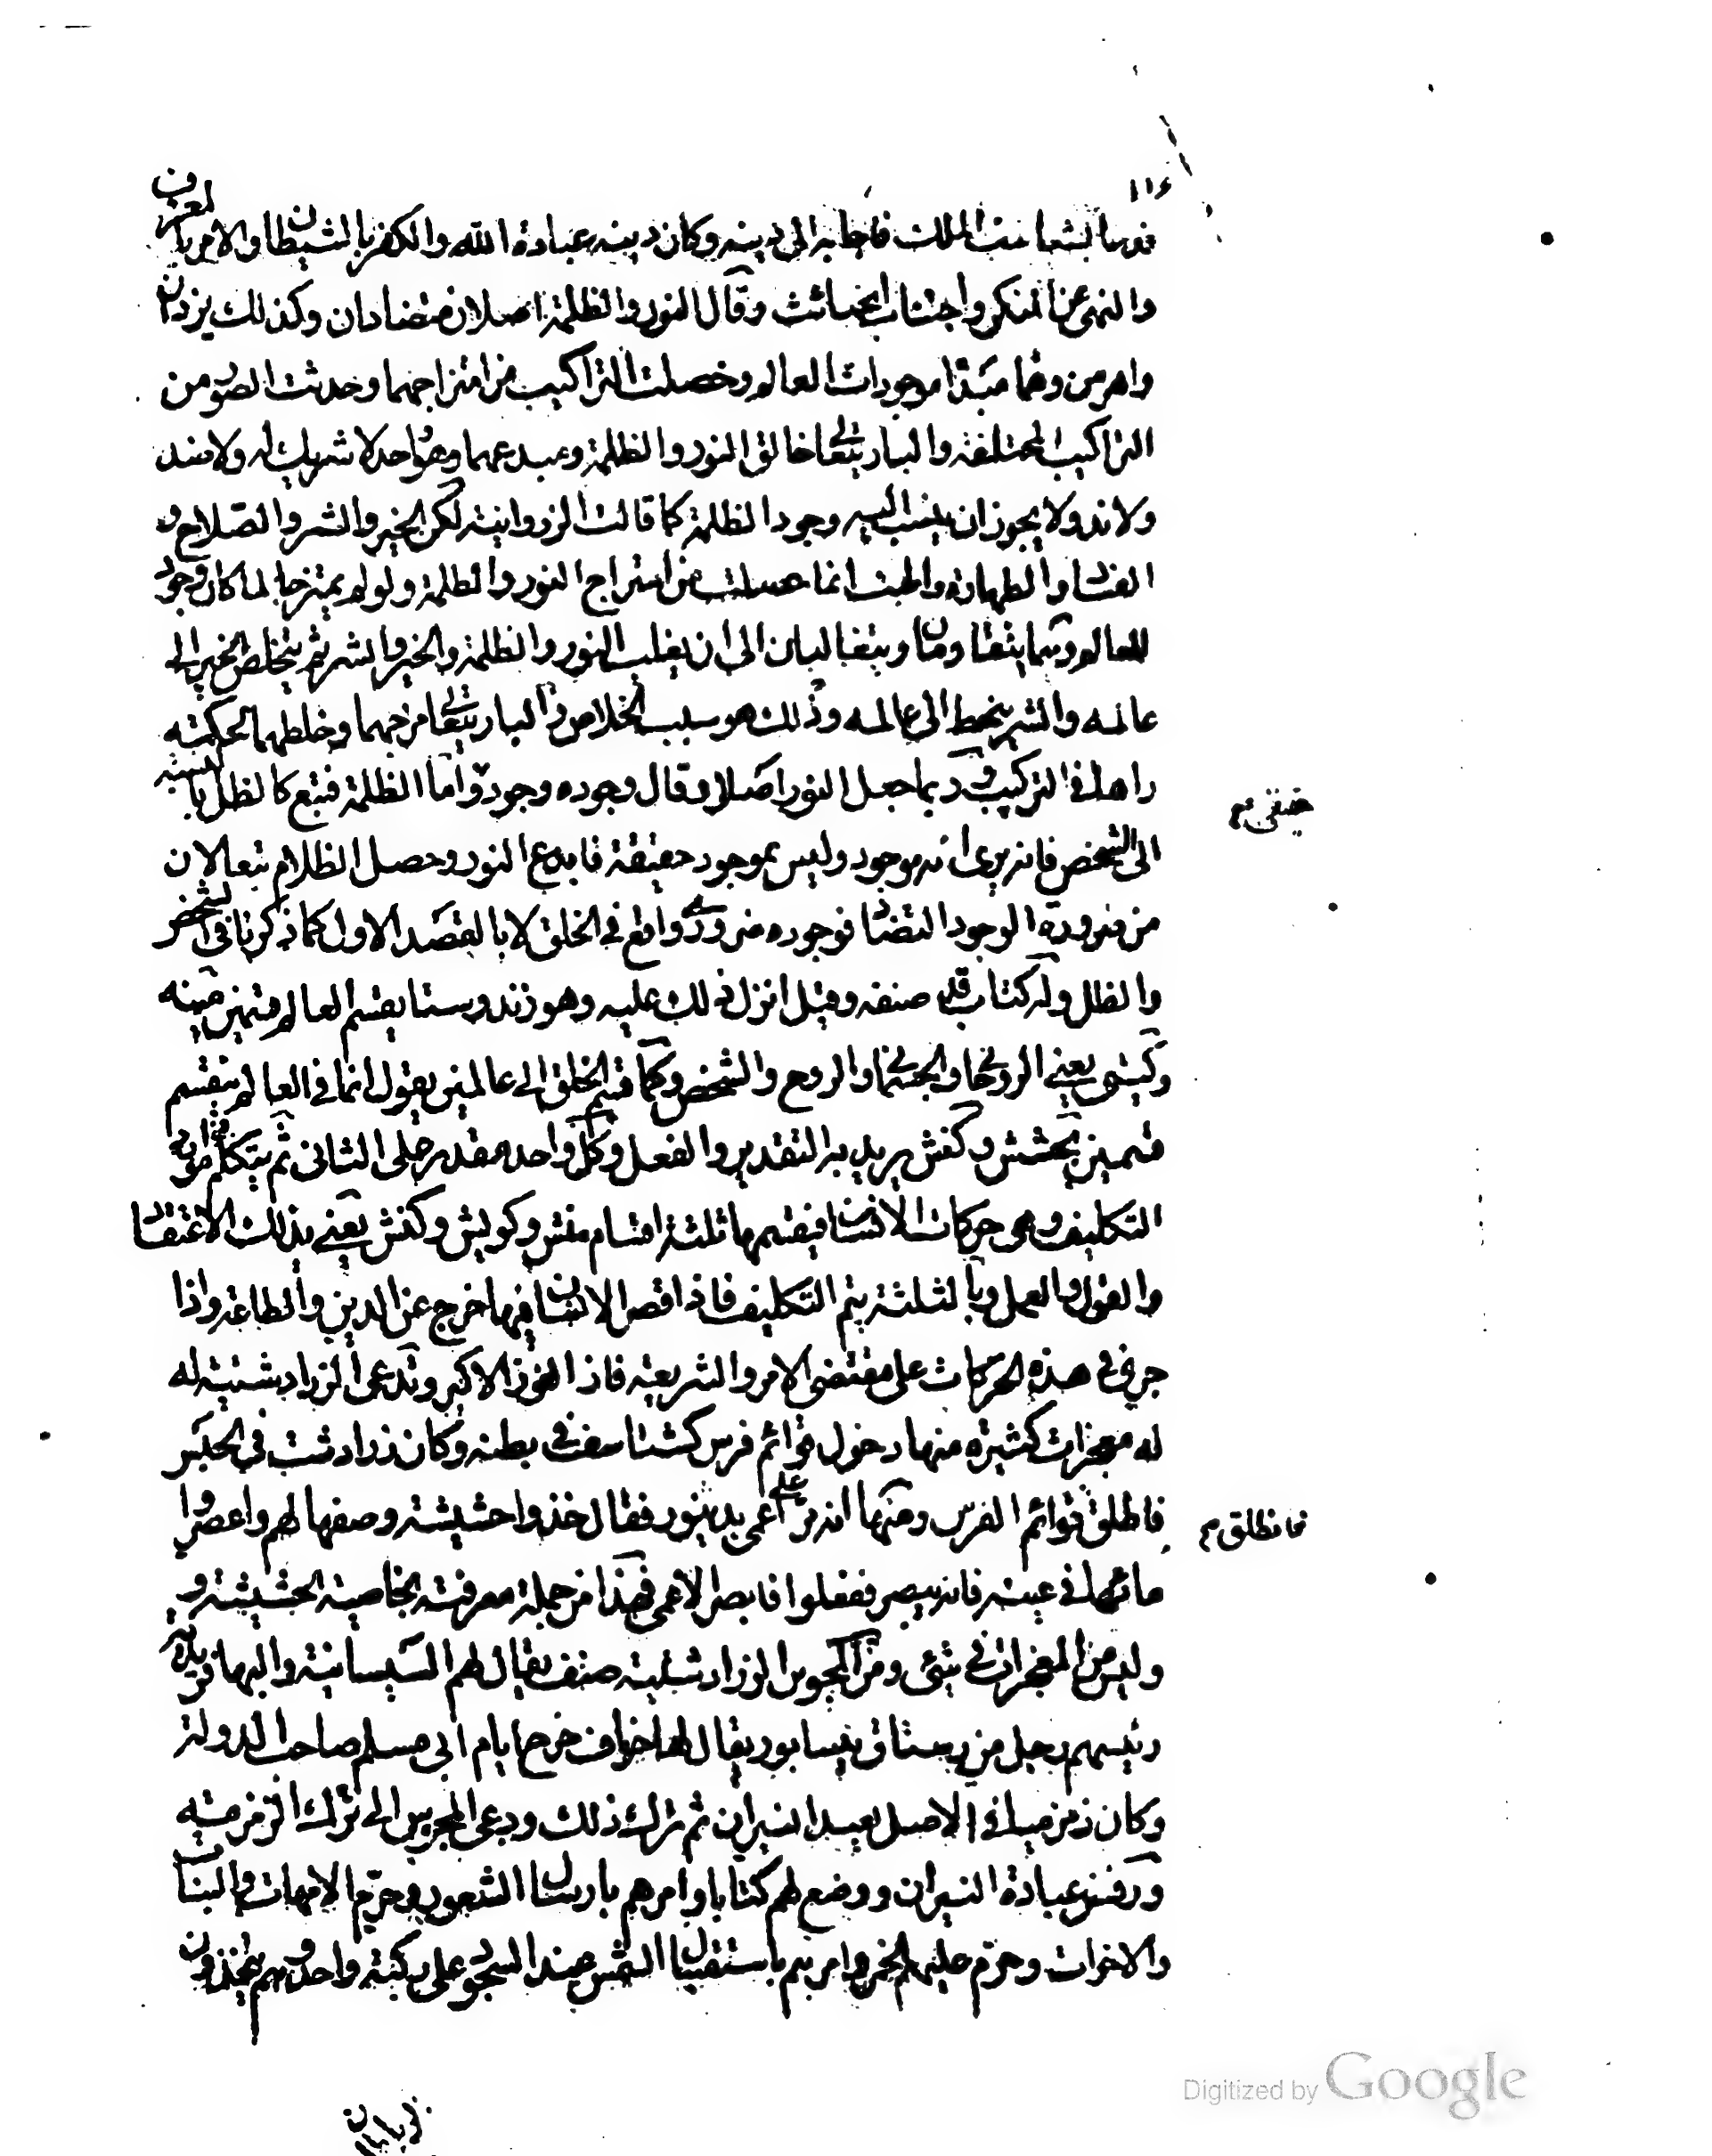 ١١٤
فدعا كشتاسف الملك فاجابه الى دينه وكان دينه عبادة الله والكفر بالشيطان والامر بالمعروف
والنهى عن المنكر واجتناب الخبائث وقال النور والظلمة اصلان متضادان وكذلك يزدان
واهرمن وهما مبدأ موجودات العالم وحصلت التراكيب من امتزاجهما وحدثت الصور من
التراكيب المختلفة والبارى تعالى خالق النور والظلمة ومبدعهما وهو واحد لا شريك له ولا ضد
ولا ند ولا يجوز ان ينسب اليه وجود الظلمة كما قالت الزروانية لكن الخير والشر والصلاح و
الفساد والطهارة والخبث انما حصلت من امتزاج النور والظلمة ولو لم يمتزجا لما كان وجود
للعالم وهما يتقاومان ويتغالبان الى ان يغلب النور الظلمة والخير الشر ثم يتخلص الخير الى
عالمه والشر ينحط الى عالمه وذلك هو سبب الخلاص والبارى تعالى مزجهما وخلطهما لحكمة
راها فى التركيب وربما جعل النور اصلا وقال وجوده وجود واما الظلمة فتبع كالظل بالنسبة
حقيقى م
الى الشخص فانه يرى انه موجود وليس بموجود حقيقة فابدع النور وحصل الظلام تبعا لان
من ضرورة الوجود التضاد فوجوده ضرورى واقع فى الخلق لا بالقصد الاول كما ذكرنا فى الشخص
والظل وله كتاب قد صنفه وقيل انزل ذلك عليه وهو زندوستا يقسم العالم قسمين مينه
وكيتى يعنى الروحانى والجسمانى والروح والشخص وكما قسم الخلق الى عالمين يقول انما فى العالم ينقسم
قسمين بخشش وكنش يريد به التقدير والفعل وكل واحد مقدر على الثانى ثم يتكلم فى موارد
التكليف وهى حركات الانسان فيقسمها ثلثة اقسام منش وكويش وكنش يعنى بذلك الاعتقاد
والقول والعمل وبالثلثة يتم التكليف فاذا قصر الانسان فيها خرج عن الدين والطاعة واذا
جرى فى هذه الحركات على مقتضى الامر والشريعة فاز الفوز الاكبر وتدعى الزرادشتية له
له معجزات كثيرة منها دخول قوائم فرس كشتاسف فى بطنه وكان زرادشت فى الحبس
فاطلق قوائم الفرس ومنها انه مر على اعمى بدينور فقال خذوا حشيشة وصفها لهم واعصروا
فانطلق م
مائها فى عينه فانه يبصر ففعلوا فابصر الاعمى فهذا من جملة معرفته بخاصية الحشيشة و
وليس من المعجزات فى شئ ومن المجوس الزرادشتية صنف يقال لهم السيسانية والبهافريدية
رئيسهم رجل من رستاق نيسابور يقال لها خواف خرج ايام ابى مسلم صاحب الدولة
وكان زمزميا فى الاصل يعبد النيران ثم ترك ذلك ودعى المجوس الى ترك الزمزمة
ورفض عبادة النيران ووضع لهم كتابا وامرهم بارسال الشعور وحرم الامهات والبنات
والاخوات وحرم عليهم الخمر وامرهم باستقبال الشمس عند السجود على ركبة واحدة وهم يتخذون